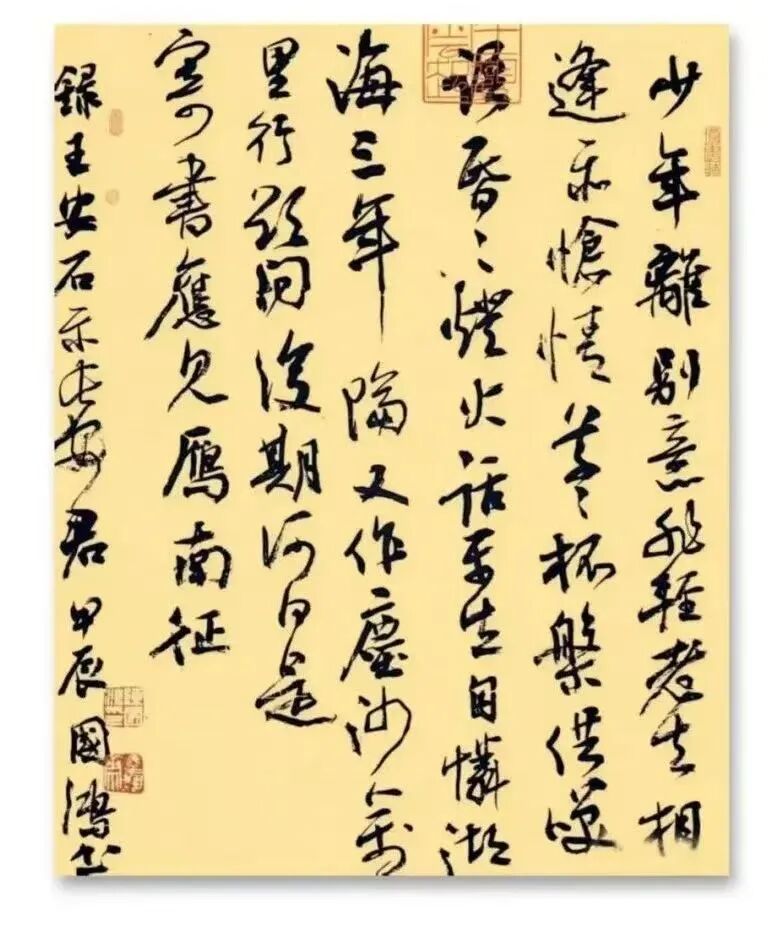 少年離別意非輕老去相
逢亦愴情草〻杯盤供笑
語昏〻燈火話平生自憐湖
海三年隔又作塵沙萬
里行欲問後期何日是
寄書應見鴈南征
錄王安石示長安君甲辰國鴻書